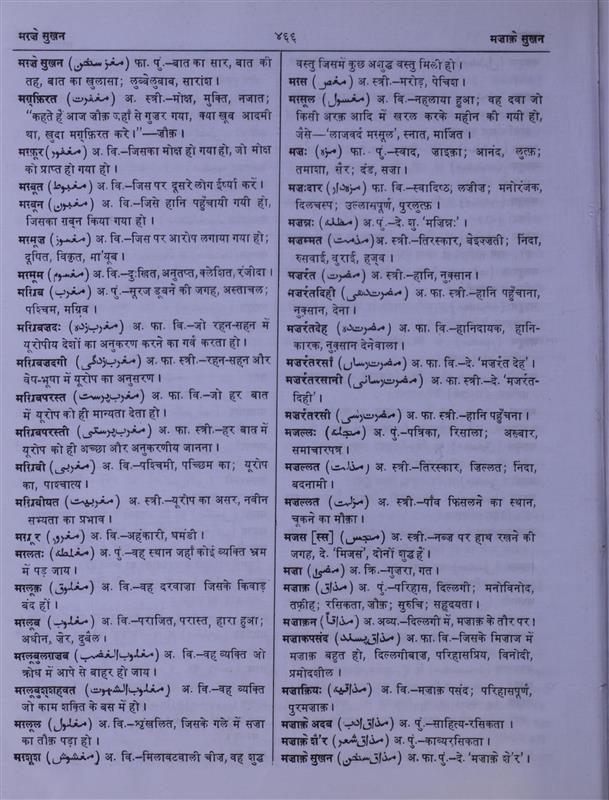 मग़्ज़े सुख़न
४६६
मज़ाक़े सुख़न
मग़्ज़े सुख़न (مغز سخن) फा. पुं.–बात का सार, बात की
तह, बात का ख़ुलासा; लुब्बेलुबाब, सारांश।
मग़्फ़िरत (مغفرت) अ. स्त्री.–मोक्ष, मुक्ति, नजात;
“कहते हैं आज ज़ौक़ जहाँ से गुज़र गया, क्या ख़ूब आदमी
था, ख़ुदा मग़्फ़िरत करे।”—ज़ौक़।
मग़्फ़ूर (مغفور) अ. वि.–जिसका मोक्ष हो गया हो, जो मोक्ष
को प्राप्त हो गया हो।
मग़्बूत (مغبوط) अ. वि.–जिस पर दूसरे लोग ईर्ष्या करें।
मग़्बून (مغبون) अ. वि.–जिसे हानि पहुँचायी गयी हो,
जिसका ग़बन किया गया हो।
मग़्मूज़ (مغموز) अ. वि.–जिस पर आरोप लगाया गया हो;
दूषित, विकृत, मा'यूब।
मग़्मूम (مغموم) अ. वि.–दुःखित, अनुतप्त, क्लेशित, रंजीदा।
मग़्रिब (مغرب) अ. पुं.–सूरज डूबने की जगह, अस्ताचल;
पश्चिम, मग़्रिब।
मग़्रिबज़दः (مغرب زده) अ. फा. वि.–जो रहन-सहन में
यूरोपीय देशों का अनुकरण करने का गर्व करता हो।
मग़्रिबज़दगी (مغرب زدگی) अ. फा. स्त्री.–रहन-सहन और
वेष-भूषा में यूरोप का अनुसरण।
मग़्रिबपरस्त (مغرب پرست) अ. फा. वि.–जो हर बात
में यूरोप को ही मान्यता देता हो।
मग़्रिबपरस्ती (مغرب پرستی) अ. फा. स्त्री.–हर बात में
यूरोप को ही अच्छा और अनुकरणीय जानना।
मग़्रिबी (مغربی) अ. वि.–पश्चिमी, पच्छिम का; यूरोप
का, पाश्चात्य।
मग़्रिबीयत (مغربیت) अ. स्त्री.–यूरोप का असर, नवीन
सभ्यता का प्रभाव।
मग़्रूर (مغرور) अ. वि.–अहंकारी, घमंडी।
मग़्लतः (مغلطه) अ. पुं.–वह स्थान जहाँ कोई व्यक्ति भ्रम
में पड़ जाय।
मग़्लूक़ (مغلوق) अ. वि.–वह दरवाज़ा जिसके किवाड़
बंद हों।
मग़्लूब (مغلوب) अ. वि.–पराजित, परास्त, हारा हुआ;
अधीन, ज़ेर, दुर्बल।
मग़्लूबुलग़ज़ब (مغلوب الغضب) अ. वि.–वह व्यक्ति जो
क्रोध में आपे से बाहर हो जाय।
मग़्लूबुश्शह्वत (مغلوب الشهوت) अ. वि.–वह व्यक्ति
जो काम शक्ति के बस में हो।
मग़्लूल (مغلول) अ. वि.–श्रृंखलित, जिसके गले में सज़ा
का तौक़ पड़ा हो।
मग़्शूश (مغشوش) अ. वि.–मिलावटवाली चीज़, वह शुद्ध
वस्तु जिसमें कुछ अशुद्ध वस्तु मिली हो।
मग़्स (مغص) अ. स्त्री.–मरोड़, पेचिश।
मग़्सूल (مغسول) अ. वि.–नहलाया हुआ; वह दवा जो
किसी अरक़ आदि में खरल करके महीन की गयी हो,
जैसे—‘लाजवर्द मग़्सूल’, स्नात, मार्जित।
मज़ः (مزه) फा. पुं.–स्वाद, ज़ाइक़ा; आनंद, लुत्फ़;
तमाशा, सैर; दंड, सज़ा।
मज़ःदार (مزه دار) फा. वि.–स्वादिष्ठ; लज़ीज़; मनोरंजक,
दिलचस्प; उल्लासपूर्ण, पुरलुत्फ़।
मज़न्नः (مظنه) अ. पुं.–दे. शु. ‘मज़िन्नः’।
मज़म्मत (مذمت) अ. स्त्री.–तिरस्कार, बेइज़्ज़ती; निंदा,
रुसवाई, बुराई, हज्व।
मज़र्रत (مضرت) अ. स्त्री.–हानि, नुक़्सान।
मज़र्रतदिही (مضرت دهی) अ. फा. स्त्री.–हानि पहुँचाना,
नुक़्सान, देना।
मज़र्रतदेह (مضرت ده) अ. फा. वि.–हानिदायक, हानि-
कारक, नुक़्सान देनेवाला।
मज़र्रतरसाँ (مضرت رساں) अ. फा. वि.–दे. ‘मज़र्रत देह’।
मज़र्रतरसानी (مضرت رسانی) अ. फा. स्त्री.–दे. ‘मज़र्रत-
दिही’।
मज़र्रतरसी (مضرت رسی) अ. फा. स्त्री.–हानि पहुँचना।
मजल्लः (مجله) अ. पुं.–पत्रिका, रिसाला; अख़्बार,
समाचारपत्र।
मज़ल्लत (مذلت) अ. स्त्री.–तिरस्कार, ज़िल्लत; निंदा,
बदनामी।
मज़ल्लत (مزلت) अ. स्त्री.–पाँव फिसलने का स्थान,
चूकने का मौक़ा।
मजस [स्स] (مجس) अ. स्त्री.–नब्ज़ पर हाथ रखने की
जगह, दे. ‘मिजस’, दोनों शुद्ध हैं।
मज़ा (مضی) अ. क्रि.–गुज़रा, गत।
मज़ाक़ (مذاق) अ. पुं.–परिहास, दिल्लगी; मनोविनोद,
तफ़्रीह; रसिकता, ज़ौक़; सुरुचि; सहृदयता।
मज़ाक़न (مذاقاً) अ. अव्य.–दिल्लगी में, मज़ाक़ के तौर पर।
मज़ाक़पसंद (مذاق پسند) अ. फा. वि.–जिसके मिज़ाज में
मज़ाक़ बहुत हो, दिल्लगीबाज़, परिहासप्रिय, विनोदी,
प्रमोदशील।
मज़ाक़ियः (مذاقیه) अ. वि.–मज़ाक़ पसंद; परिहासपूर्ण,
पुरमज़ाक़।
मज़ाक़े अदब (مذاق ادب) अ. पुं.–साहित्य-रसिकता।
मज़ाक़े शे'र (مذاق شعر) अ. पुं.–काव्यरसिकता।
मज़ाक़े सुख़न (مذاق سخن) अ. फा. पुं.–दे. ‘मज़ाक़े शे'र’।